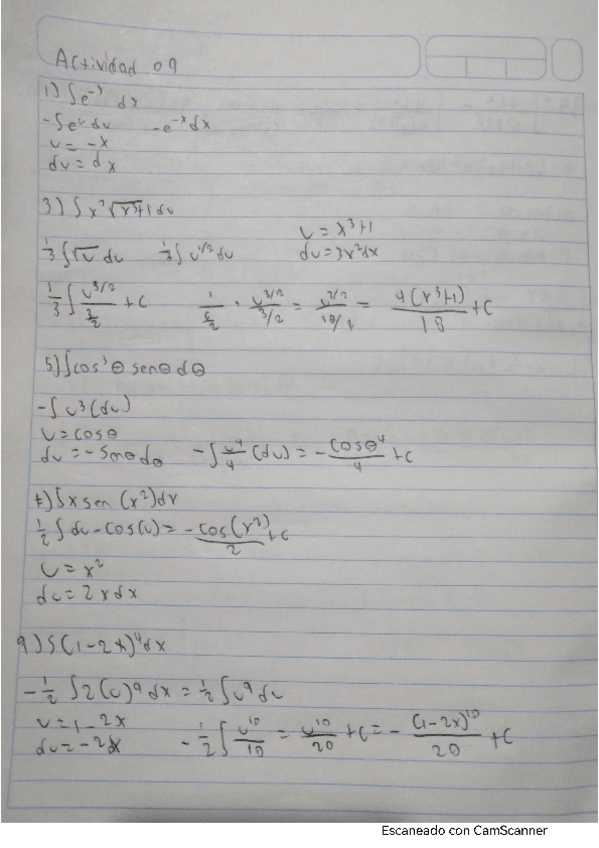 Actividad 09
1) ∫e^-x dx
-∫e^u du -e^-x dx
u = -x
du = dx
3) ∫x²√x³+1 du
u = x³+1
1/3 ∫√u du 1/3 ∫u^1/2 du du = 3x²dx
1/3 ∫ u^3/2 / 3/2 + C u^3/2 / 3/2 = 4(x³+1) / 18 + C
5) ∫cos³θ senθdθ
-∫u³(du)
u = cosθ
du = -senθdθ -∫u⁴/4 (du) = -cosθ⁴/4 + C
∫x sen (x²)dx
1/2 ∫du - cos(u) = -cos(x²)/2 + C
u = x²
du = 2xdx
9) ∫(1-2x)⁹dx
-1/2 ∫2(u)⁹ dx = 1/2 ∫u⁹ du
u = 1-2x
du = -2x -1/2 ∫ u^10/10 = u^10/20 + C = - (1-2x)^10/20 + C
Escaneado con CamScanner